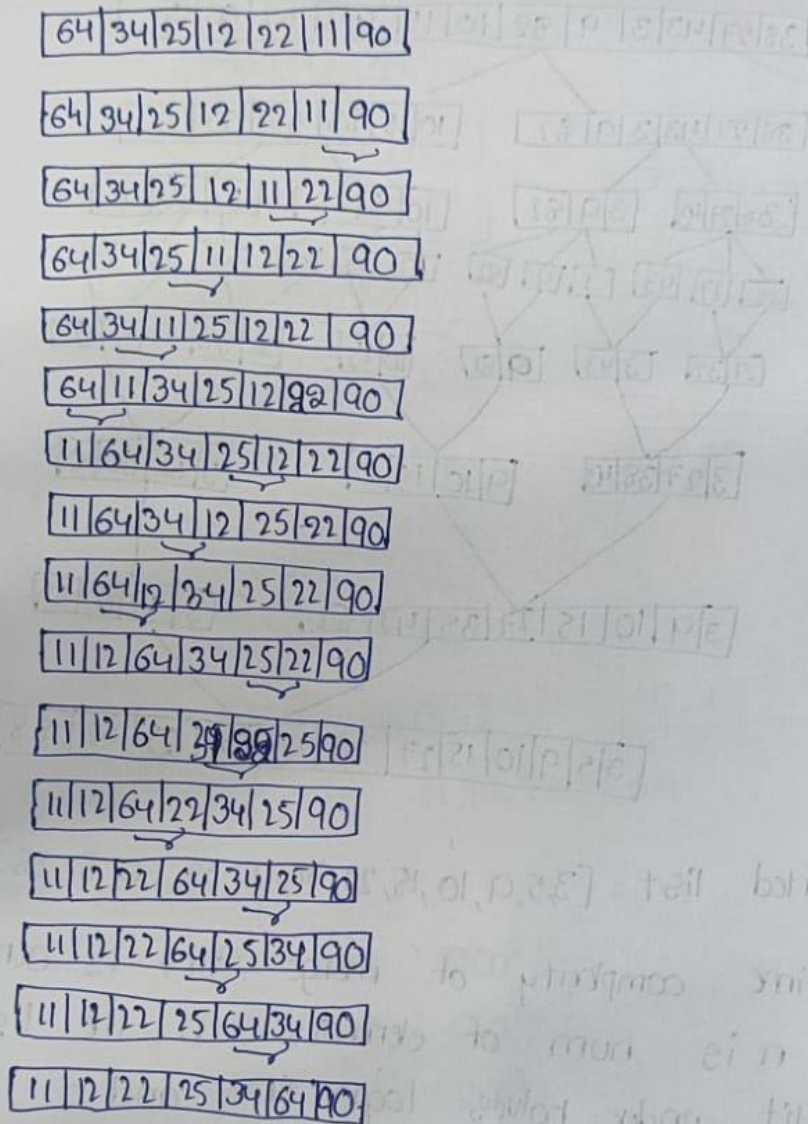 64|34|25|12|22|11|90
64|34|25|12|22|11|90
64|34|25|12|11|22|90
64|34|25|11|12|22|90
64|34|11|25|12|22|90
64|11|34|25|12|22|90
11|64|34|25|12|22|90
11|64|34|12|25|22|90
11|64|12|34|25|22|90
11|12|64|34|25|22|90
11|12|64|34|22|25|90
11|12|64|22|34|25|90
11|12|22|64|34|25|90
11|12|22|64|25|34|90
11|12|22|25|64|34|90
11|12|22|25|34|64|90